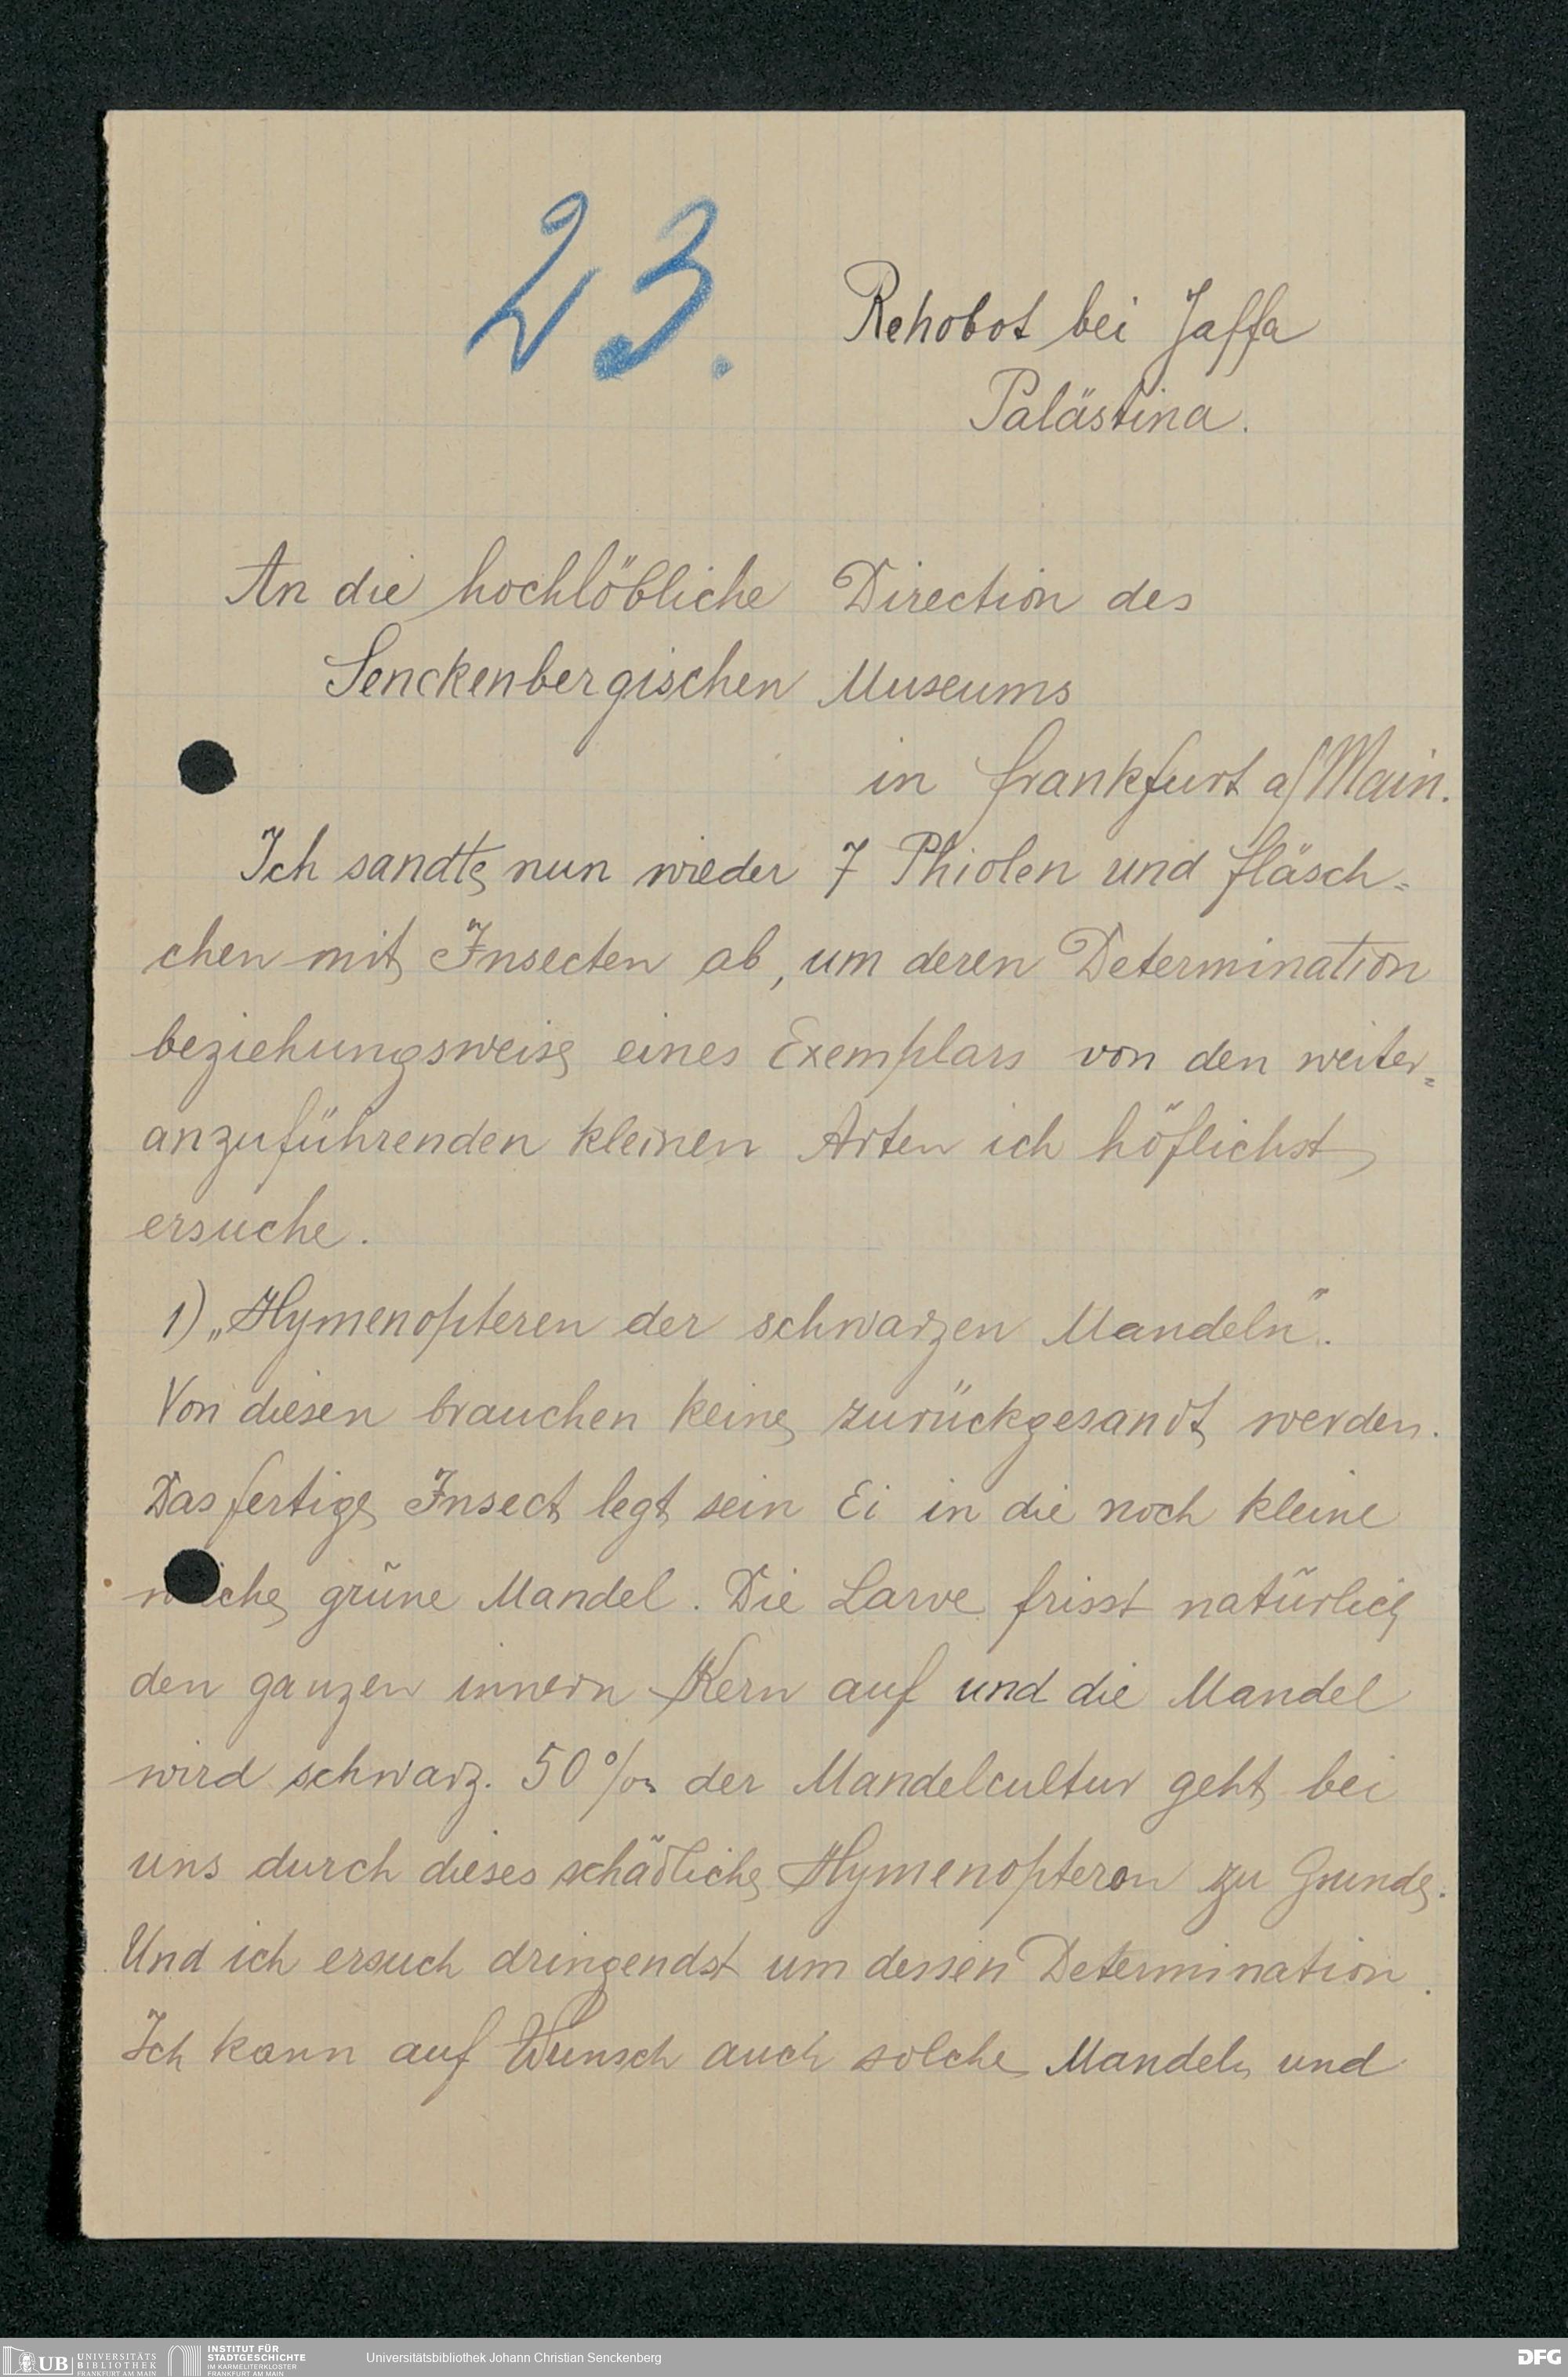 23.
Rehobot bei Jaffa
Palästina.
An die hochlöbliche Direction des
Senckenbergischen Museums
in Frankfurt a/Main.
Ich sandte nun wieder 7 Phiolen und Fläsch=
chen mit Insecten ab, um deren Determination
beziehungsweise eines Exemplars von den weiter=
anzuführenden kleinen Arten ich höflichst
ersuche.
1) „Hymenopteren der schwarzen Mandeln".
Von diesen brauchen keine zurückgesandt werden.
Das fertige Insect legt sein Ei in die noch kleine
grüne Mandel. Die Larve frisst natürlich
den ganzen innern Kern auf und die Mandel
wird schwarz. 50% der Mandelcultur geht bei
uns durch dieses schädliche Hymenopteron zu Grunde.
Und ich ersuch dringendst um dessen Determination.
Ich kann auf Wunsch auch solche Mandeln und
UB UNIVERSITÄTS
BIBLIOTHEK
FRANKFURT AM MAIN
INSTITUT FÜR
STADTGESCHICHTE
IM KARMELITERKLOSTER
FRANKFURT AM MAIN
Universitätsbibliothek Johann Christian Senckenberg
DFG